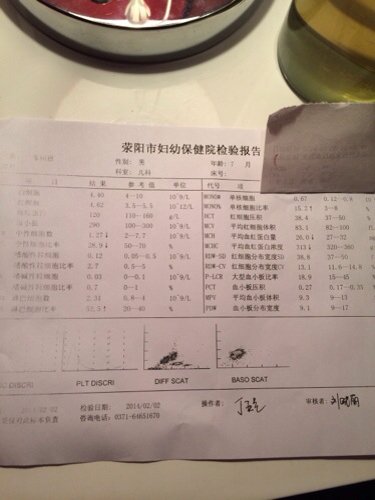 荥阳市妇幼保健院检验报告
性别: 男 年龄: 7 月
科室: 儿科 床号:
项 目 结果 参考值 单位 代号 项
白细胞 4.40 4--10 10^9/L MONO# 单核细胞 0.67 0.12-0.8
红细胞 4.62 3.5-5.5 10^12/L MONO% 单核细胞比率 15.2↑ 3--8
120 110--160 g/L HCT 红细胞压积 38.4 37--50
290 100--300 10^9/L MCV 平均红细胞体积 83.1 82--100
中性细胞数 1.27↓ 2--7.7 10^9/L MCH 平均血红蛋白量 26.0↓ 27--32
中性细胞比率 28.9↓ 50--70 % MCHC 平均血红蛋白浓度 313↓ 320--360
嗜酸性粒细胞 0.12 0.05-0.5 10^9/L RDW-SD 红细胞分布宽度SD 38.8 37--50
嗜酸性粒细胞比率 2.7 0.5--5 % RDW-CV 红细胞分布宽度CV 13.1 11.6--14.8
嗜碱性粒细胞 0.03 0--0.1 10^9/L P-LCR 大型血小板比率 18.9 15--45
嗜碱性粒细胞比率 0.7 0--1 % PCT 血小板压积 0.27 0.17-0.35
淋巴细胞数 2.31 0.8--4 10^9/L MPV 平均血小板体积 9.3 9--13
淋巴细胞比率 52.5↑ 20--40 % PDW 血小板分布宽度 9.1 9--17
DISCRI PLT DISCRI DIFF SCAT BASO SCAT
2014/02/02 检验日期: 2014/02/02 操作者: 审核者:
仅对此标本负责 咨询电话: 0371-64651670